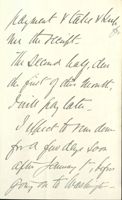 payment & take & send
me the receipt.
The second half, due
the first of this month,
I will pay later.
I expect to run down
for a few days soon
after January 1st, before
going on to Washingt-